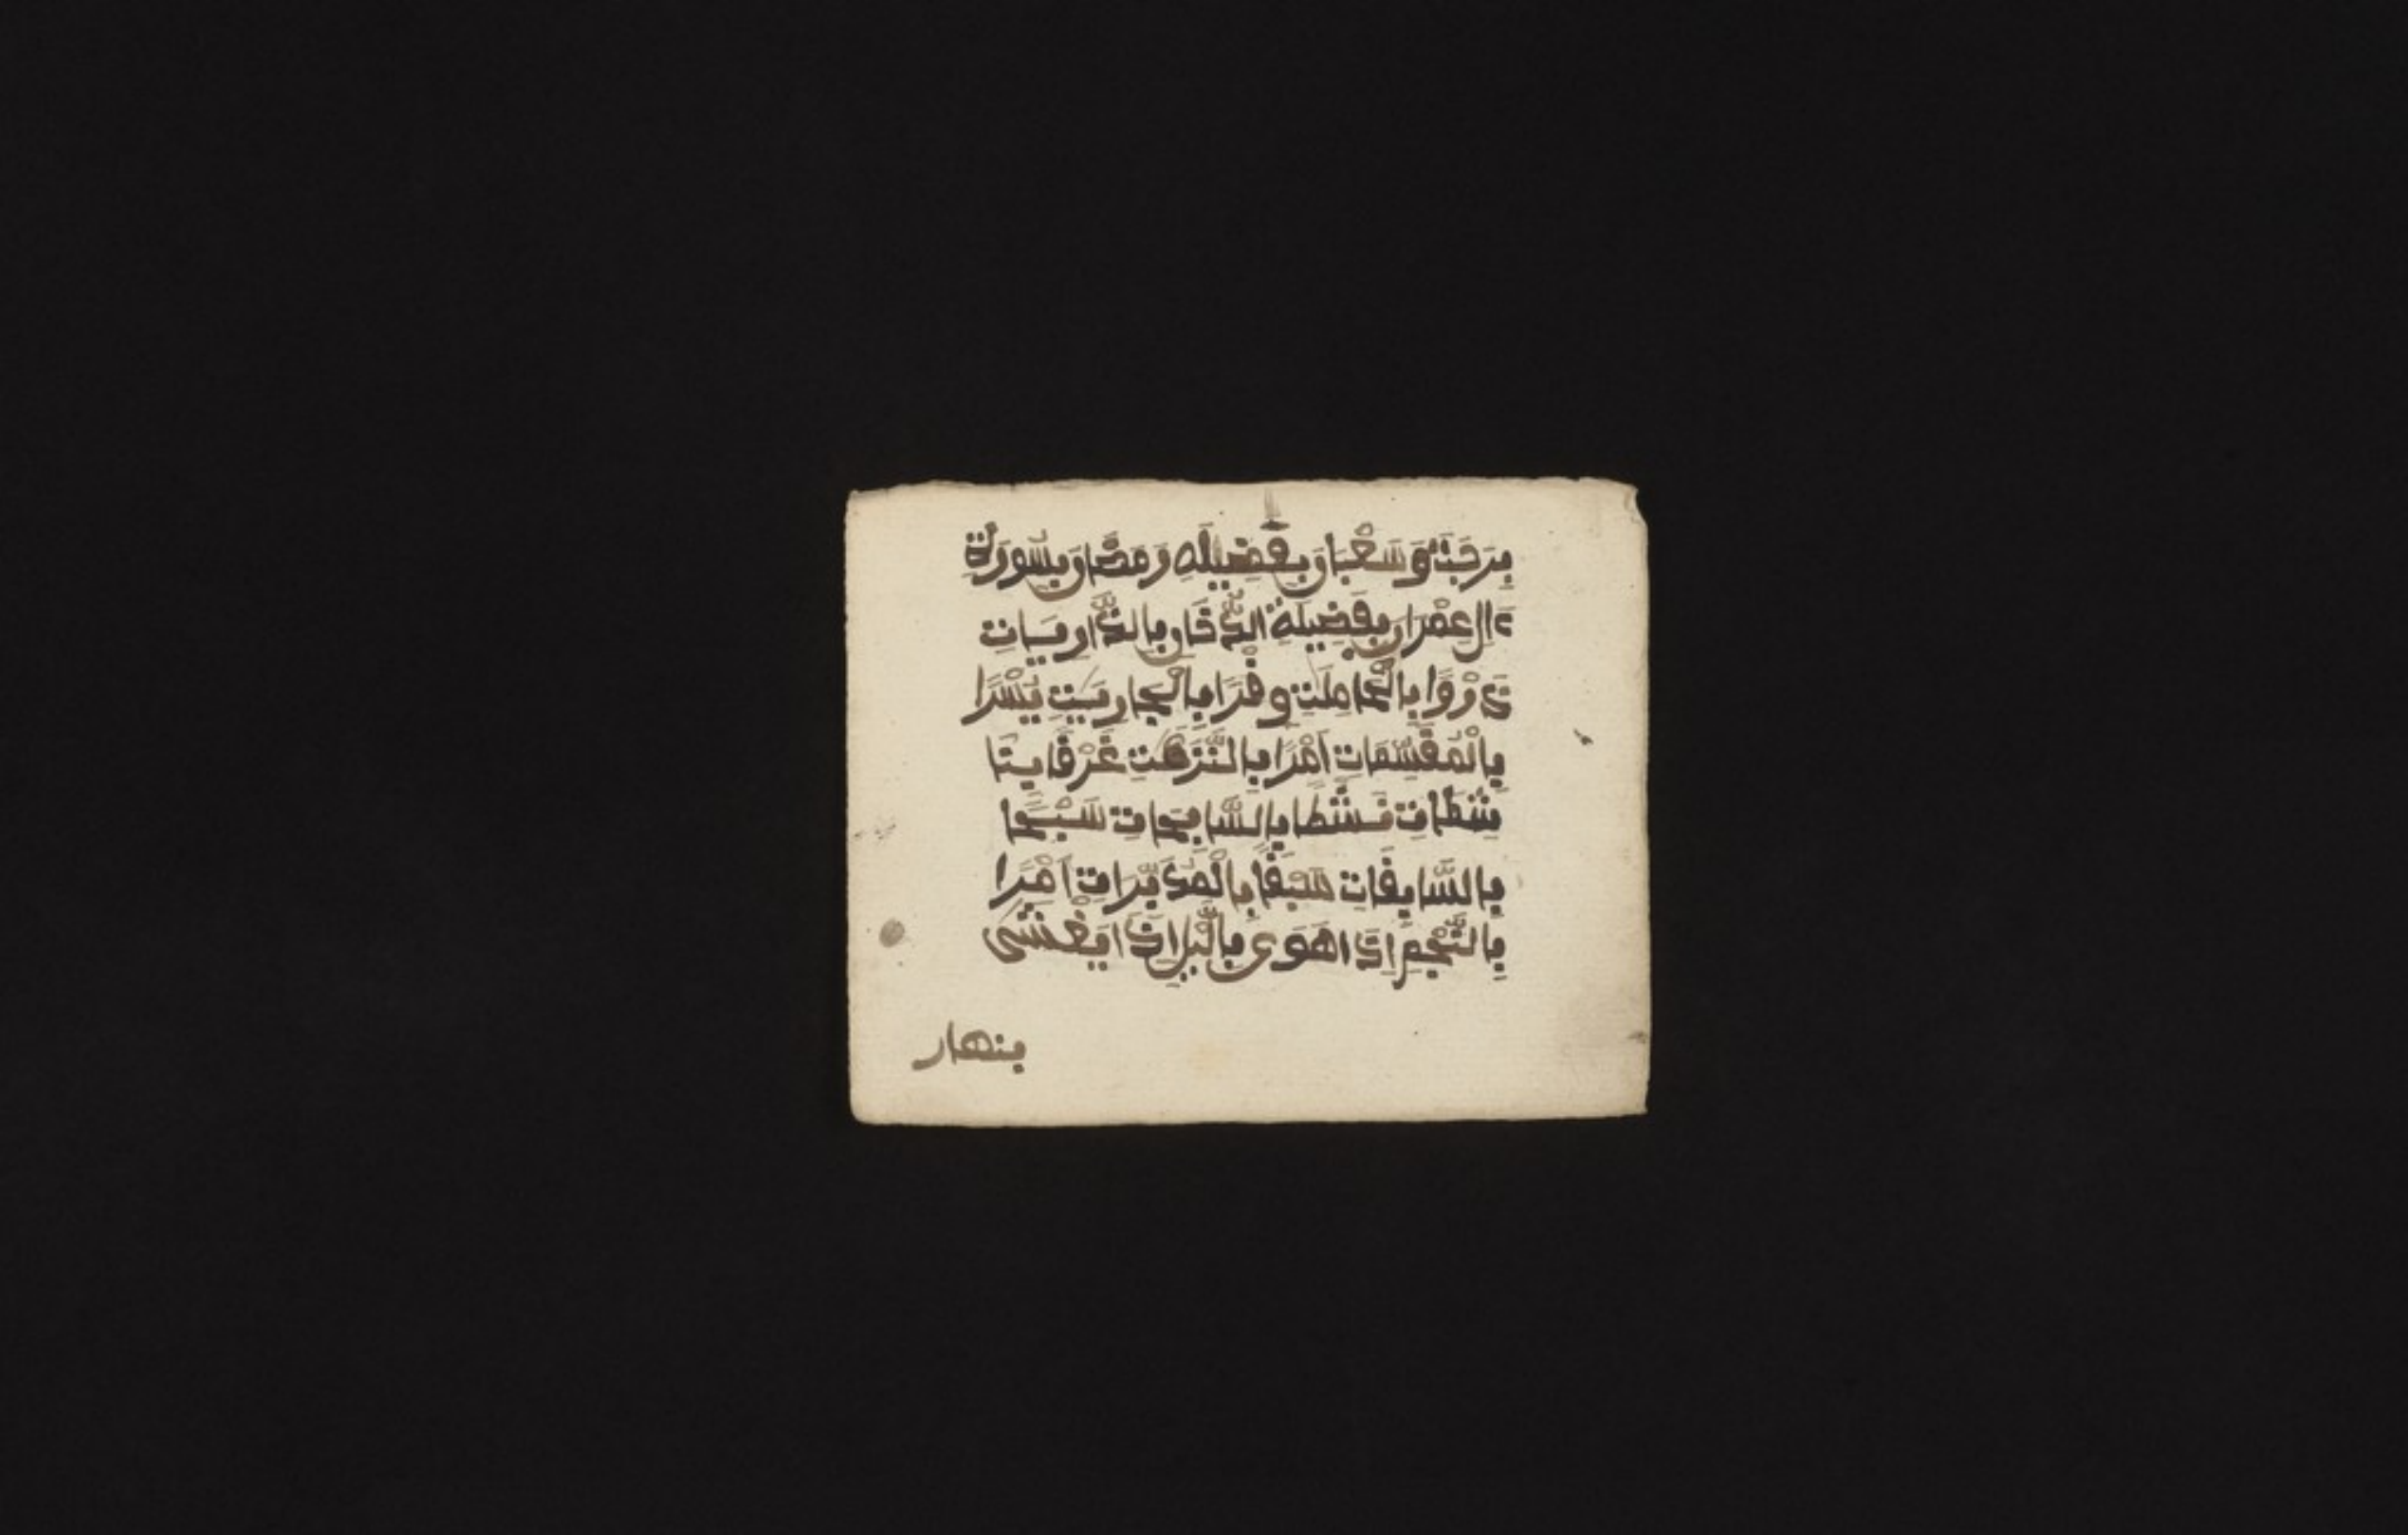 بِرَجَبَ وَسَعْبَان بِفَضِيلَهِ رَمَضَان بِسُورَةِ
ءَالِ عِمْرَان بِفَضِيلَةِ الدُّخَانِ بِالذَّارِيَاتِ
ذَرْوًا بِالْحَامِلَتِ وِقْرًا بِالْجَارِيَتِ يُسْرًا
بِالْمُقَسِّمَاتِ أَمْرًا بِالنَّزِعَتِ غَرْقًا بِنَا
شِطَاتِ نَشْطًا بِالسَّابِحَاتِ سَبْحًا
بِالسَّابِقَاتِ سَبْقًا بِالْمُدَبِّرَاتِ أَمْرًا
بِالنَّجْمِ إِذَا هَوَى بِالَّيْلِ إِذَا يَغْشَى
بنهار